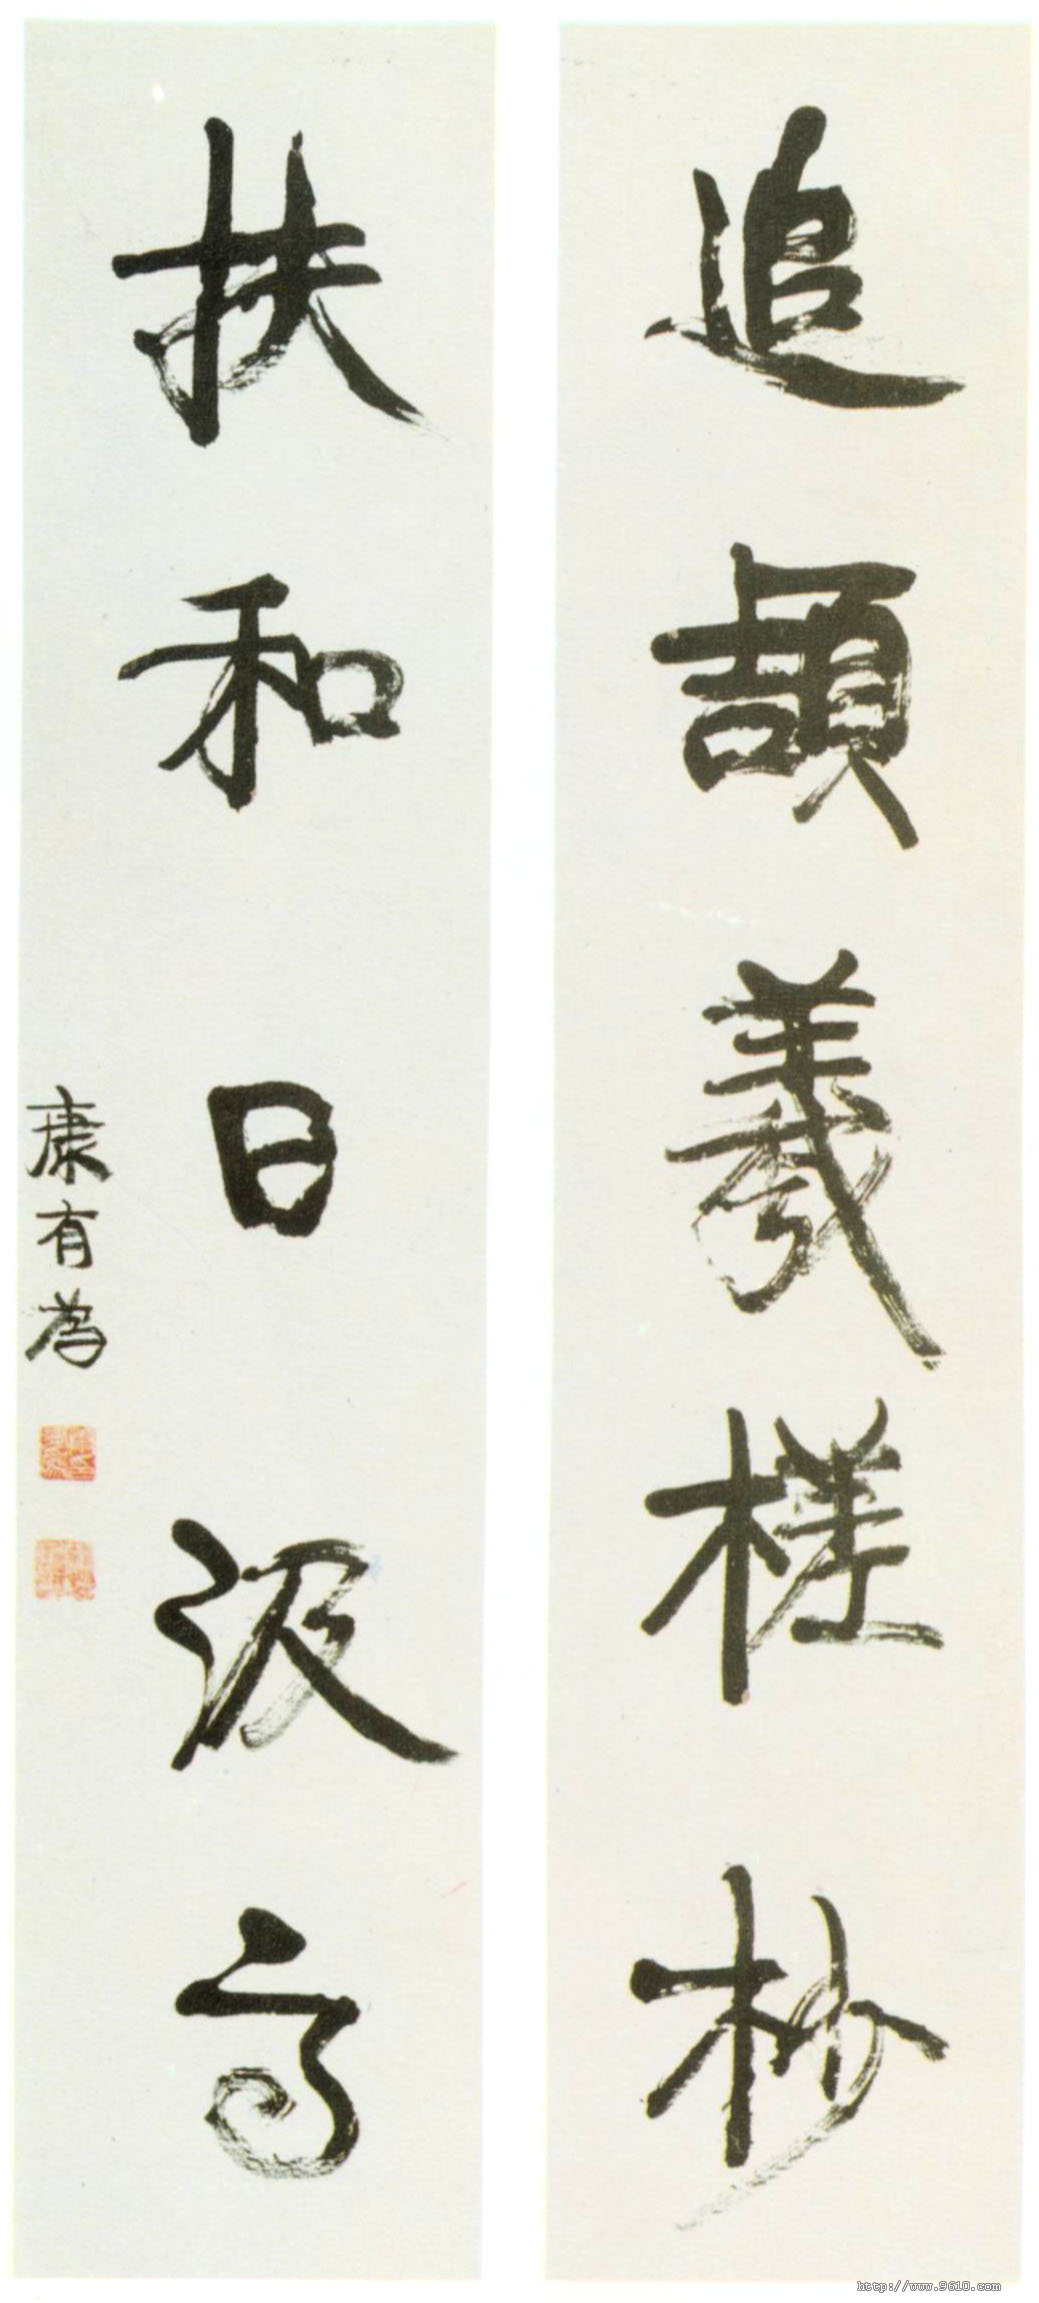 追頡羲槎杪
扶和日汲高
康有為
http://www.9610.com